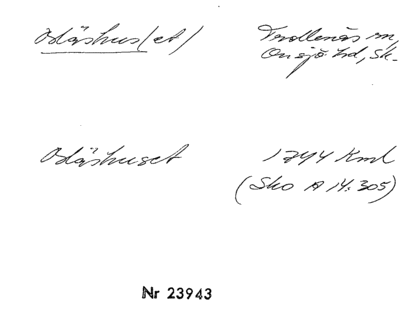 Odåshus(et) Trollenäs sn,
Onsjö hd, Sk.
Odåshuset 1744 Kml
(Sko A 14:305)
Nr 23943